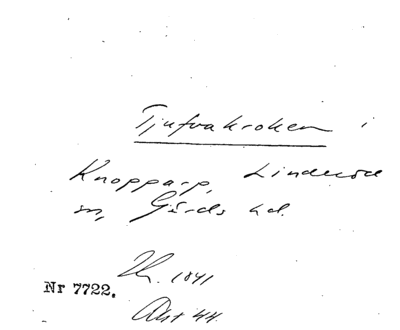 Tjufvakroken i
Knopparp, Linderöd
sn, Gärds hd.
1841
Nr 7722.
Akt 44.